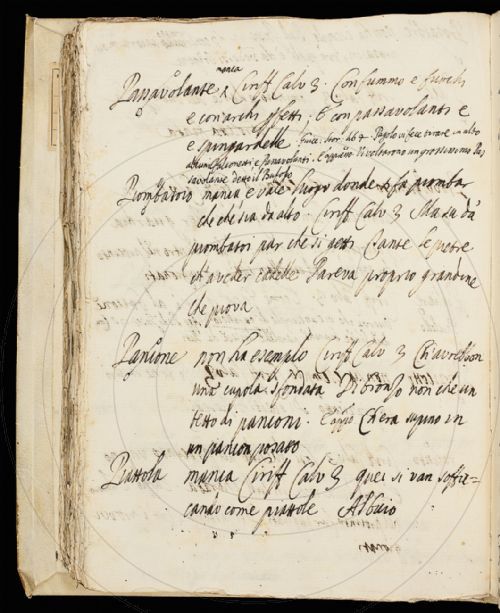 manca
Passavolante ^ Ciriff Calv 3. Con fummo e fuochi
e con archi offesi. E con passavolanti e
e spingardelle Guicc. Stor. lib 7. Pagolo vi fece tirare in alto
alcuni falconetti e passavolanti. E appresso. Vi voltarono un grossissimo Pas
savolante detto il Bufolo
Piombatoio manca e vale luogo donde si fa piombar
ciò che sia da alto. Ciriff Calv 3 Ma su da
piombatoi par che si getti Tante le pietre
et a veder calelle Pareva proprio grandine
che piova
Pancione non ha esemplo Ciriff Calv 3
una cupola sfondata Di bronzo non che un
tetto di pancioni. E appo Ch'era supino in
un pancion posato
Piattola manca Ciriff Calv 3 quei si van soffic=
cando come piattole Al buio